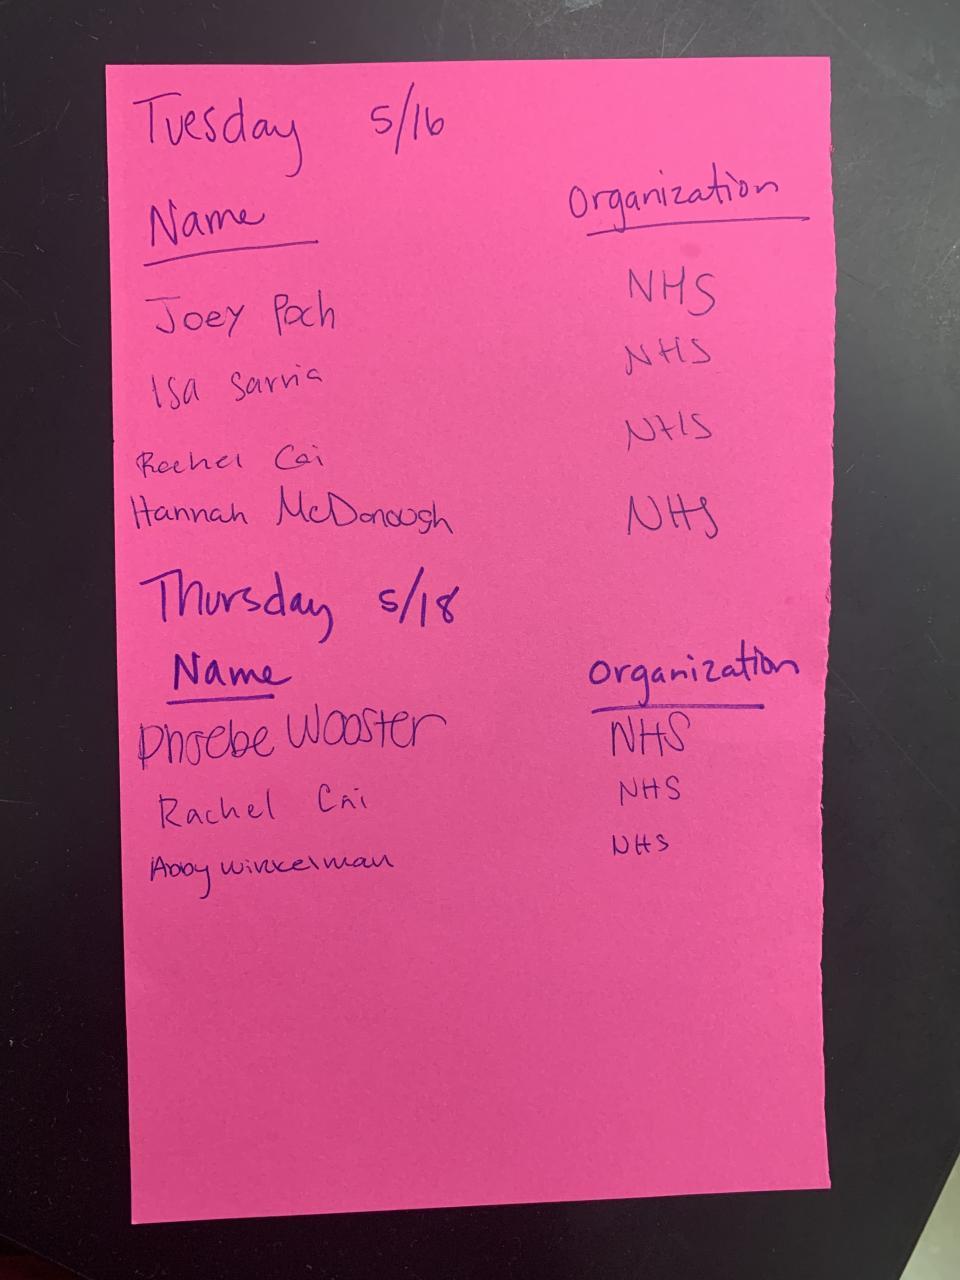 Tuesday 5/16
Name Organization
Joey Poch NHS
Isa Sarria NHS
Rachel Cai NHS
Hannah McDonough NHS
Thursday 5/18
Name Organization
Phoebe Wooster NHS
Rachel Cai NHS
Abby Winkelman NHS